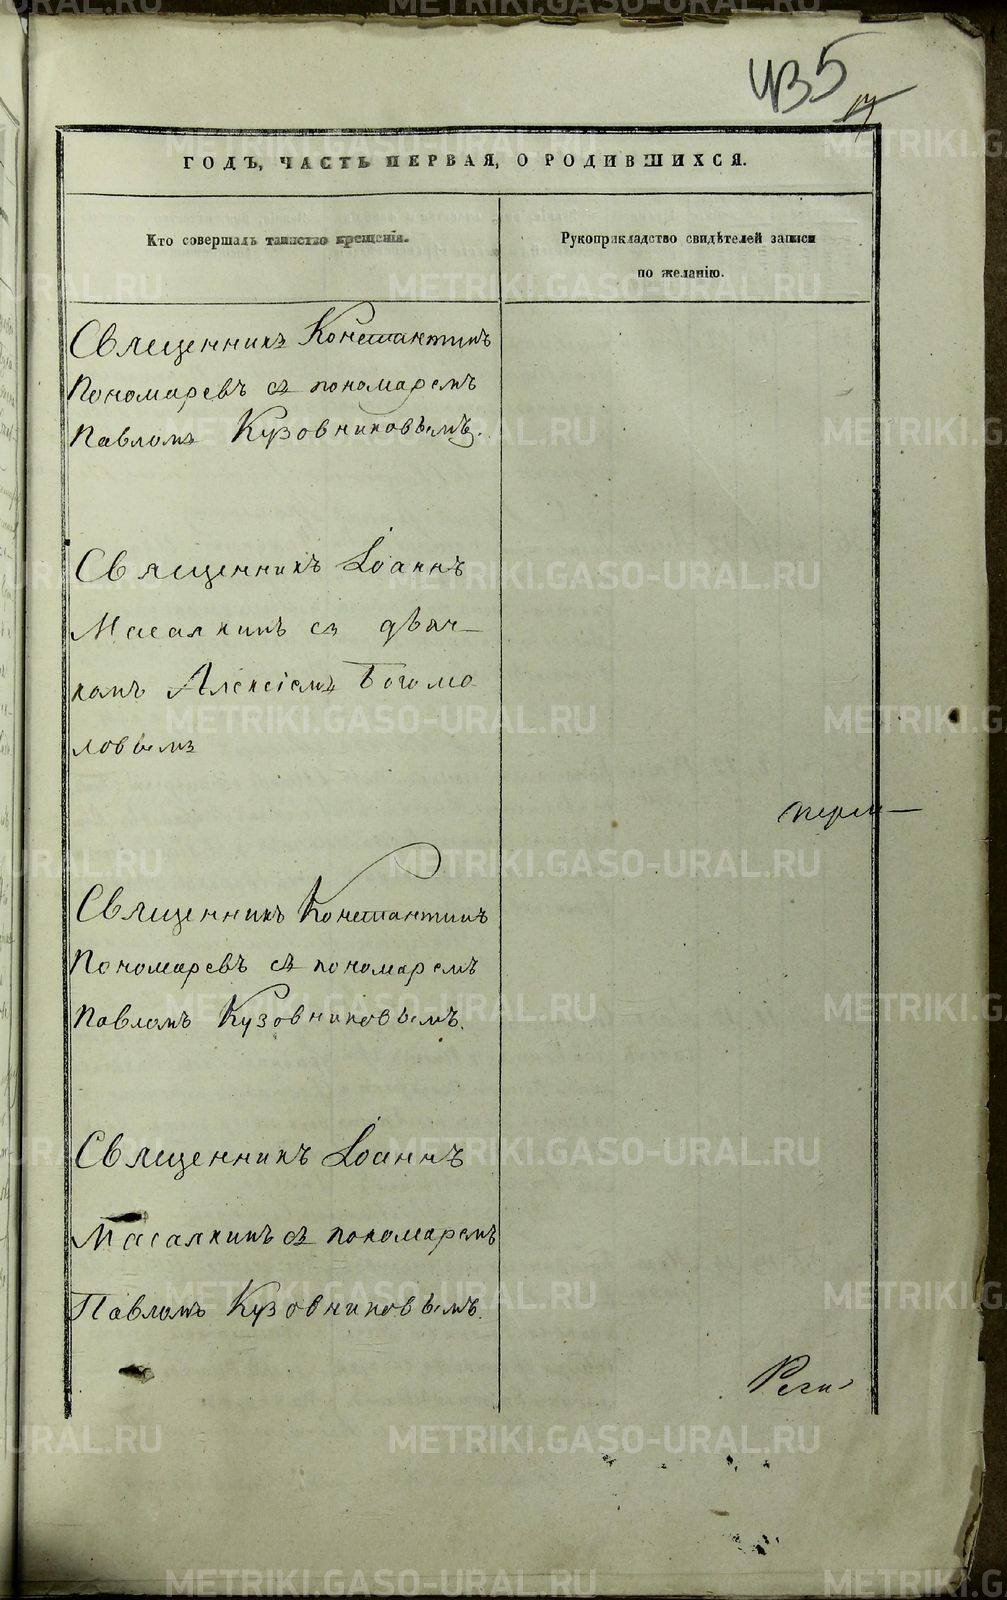 435
ГОДЪ, ЧАСТЬ ПЕРВАЯ, О РОДИВШИХСЯ.
Кто совершалъ таинство крещенія.
Рукоприкладство свидѣтелей записи
по желанію.
Священникъ Константинъ
Пономаревъ съ пономаремъ
Павломъ Кузовниковымъ.
Священникъ Іоаннъ
Масалкинъ съ дьяч-
комъ Алексіемъ Богомо
ловымъ
Священникъ Константинъ
Пономаревъ съ пономаремъ
Павломъ Кузовниковымъ.
Священникъ Іоаннъ
Масалкинъ съ пономаремъ
Павломъ Кузовниковымъ.
METRIKI.GASO-URAL.RU